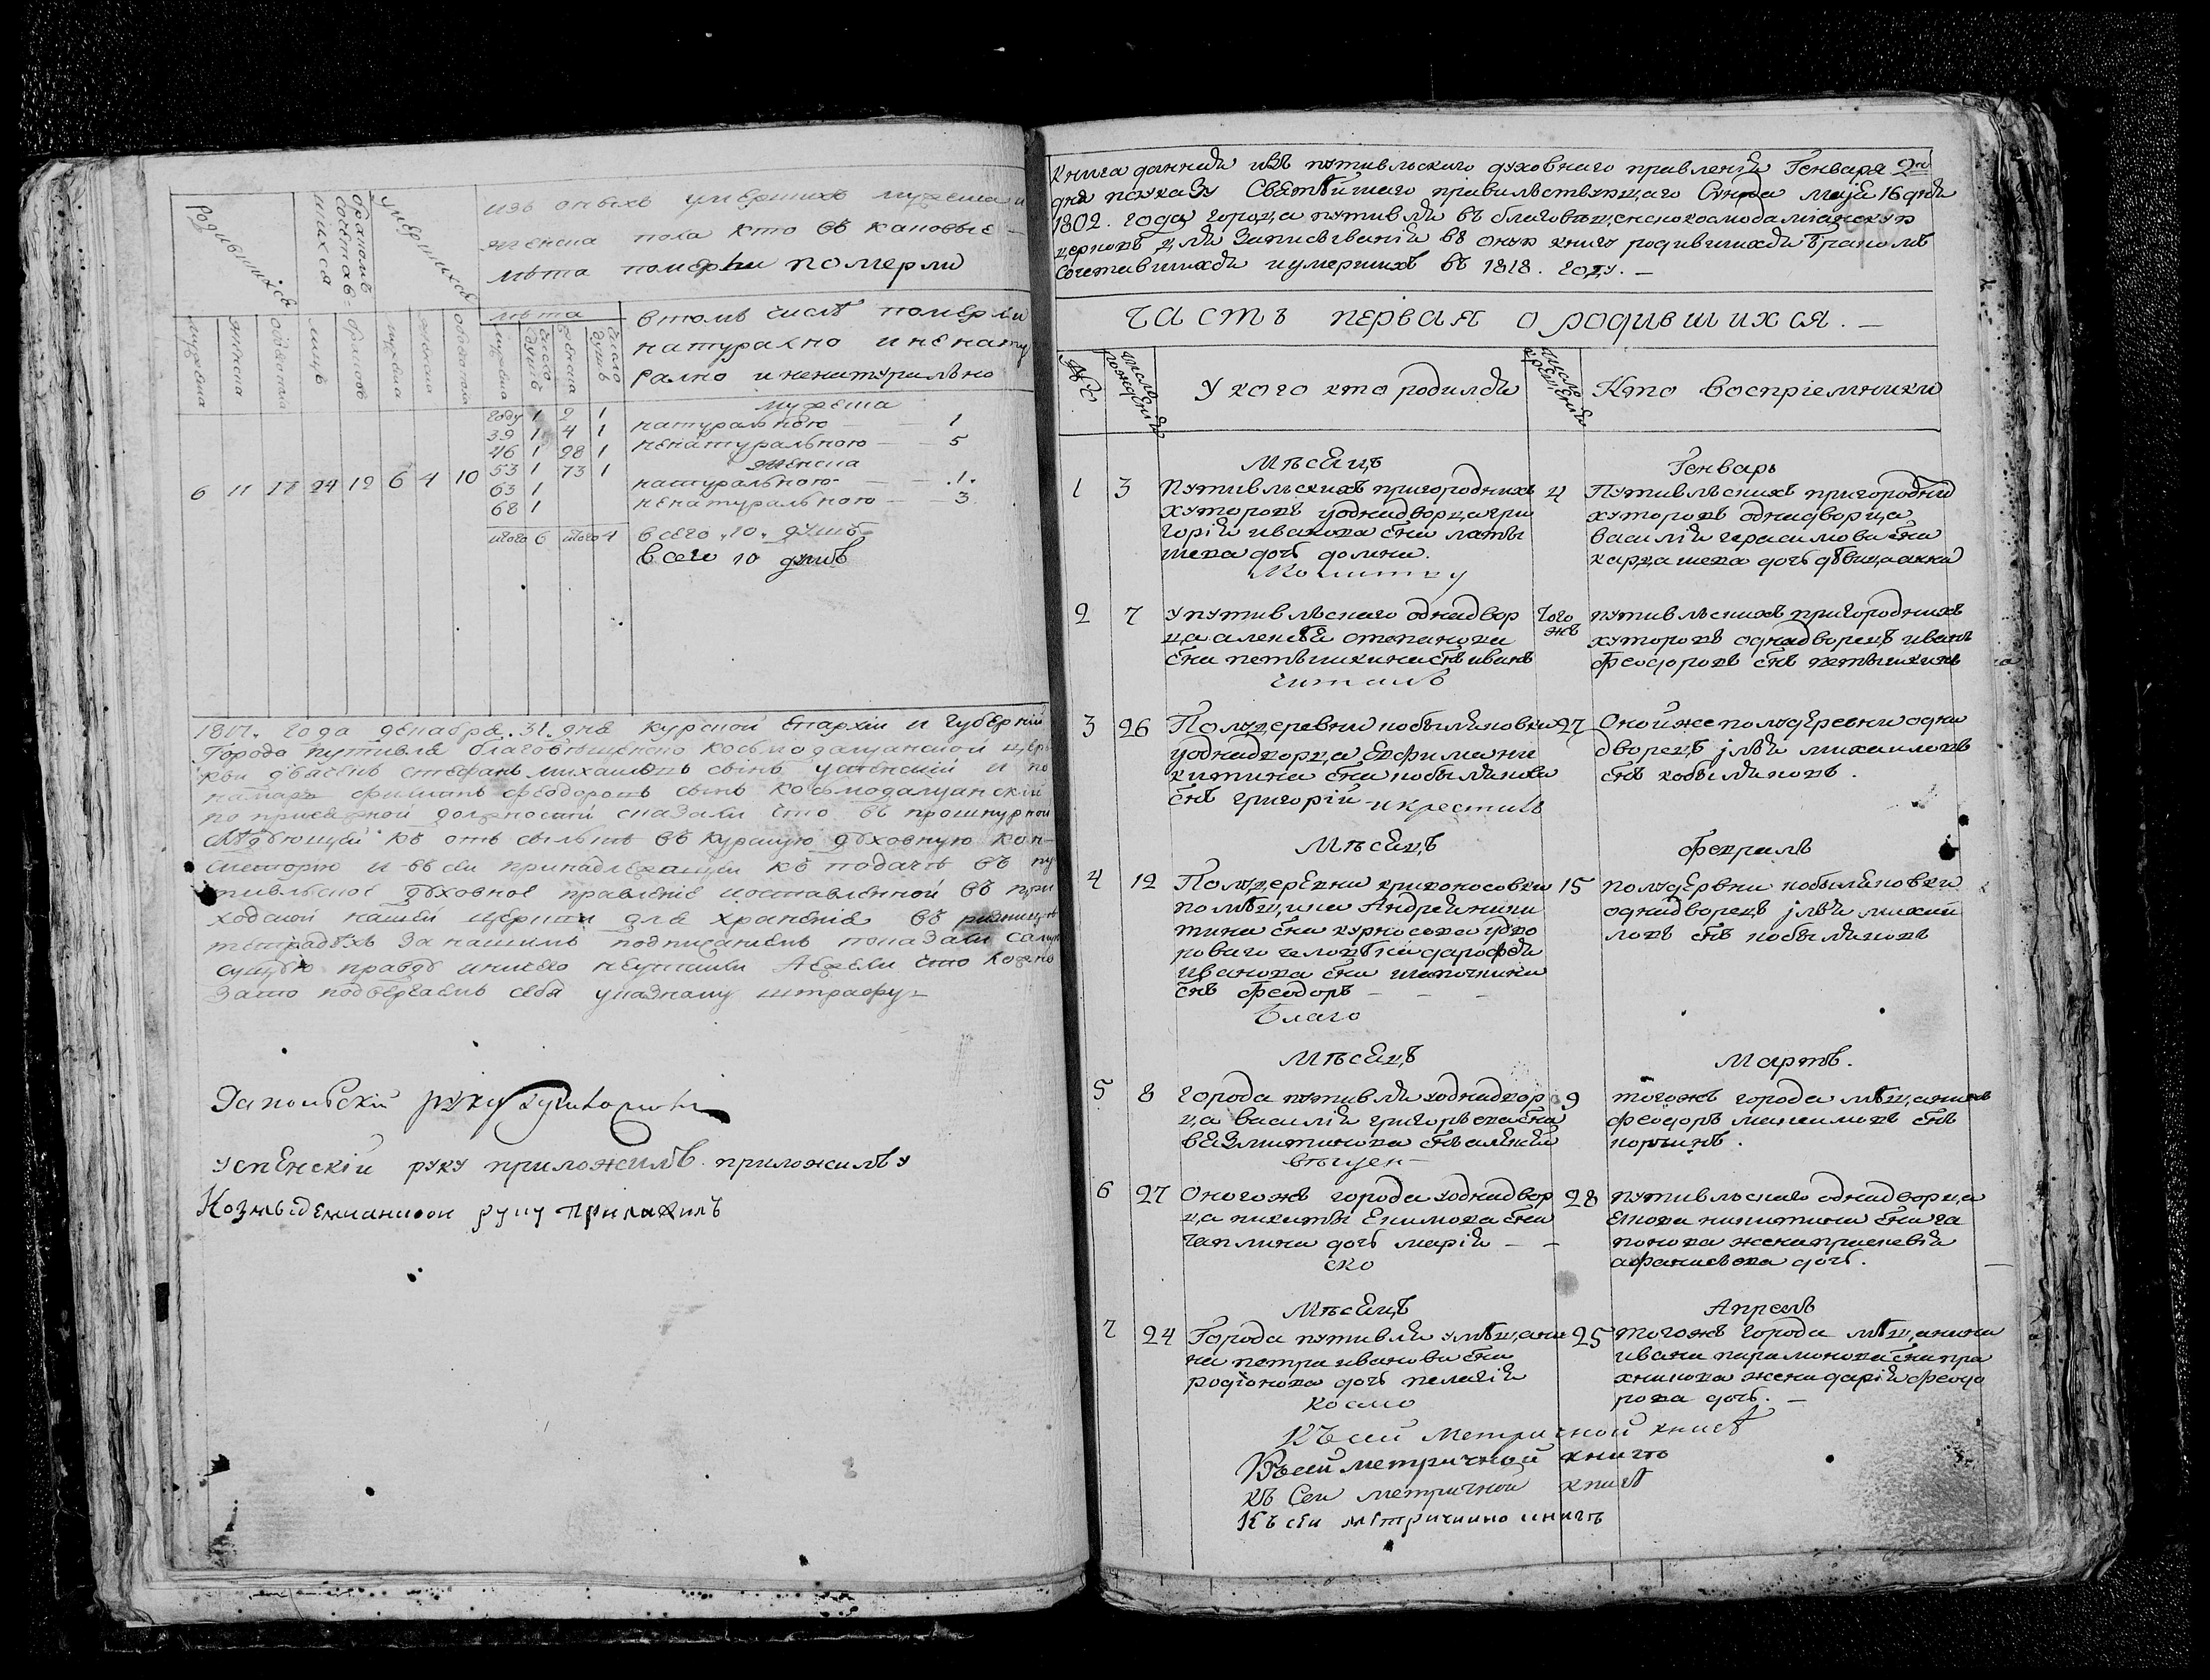 родившихся
бракомъ
сочетав-
шихся
умершихъ
изъ оныхъ умершихъ мужеска и
женска пола кто въ каковые
лѣта померли померли
мужеска
женска
обоего пола
лицъ
браковъ
мужеска
женска
обоего пола
лѣта
мужеска
число душъ
женска
число душъ
втомъ числѣ померли
натурално и ненату
рално и ненатурально
мужеска
году 1 2 1 натуральною — 1
39 1 4 1 ненатуральною — 5
46 1 28 1 женска
53 1 73 1 натуральною — 1.
63 1 ненатуральною — 3
68 1
6 11 17 24 12 6 4 10
итого 6 итого 4 всего .10. душъ
всего 10 душъ
1817. года декабря .31. дня курской Епархіи и губерніи
Города путивля благовѣщенско космодаміанской цер
кви дьячекъ стефанъ михайловъ сынъ успенскій и по
намарь филипъ феодоровъ сынъ космодаміанскій
по присяжной должности сказали что въ прошнурной
слѣдующей къ отсылкѣ въ курскую духовную кон-
систорію и въ сей принадлежащей къ подачѣ въ пу
тивльское духовное правленіе и оставленной въ при
ходской нашей церкви для храненія въ ризницѣ
тетрадѣхъ за нашимъ подписаніемъ показали самую
сущую правду ничего неутаили Ажели что ложно
зато подвергаемъ себя указному штрафу
Запольскій руку приложилъ
успенскій руку приложилъ приложилъ у
Козмыдемианской руку Приложилъ
Книга данная изъ путивльского духовнаго правленія Генваря 2го
дня поуказу Святѣйшаго правильствующаго Сунода маія 16 дня
1802. года города путивля въ благовѣщенскокосмодаміанскую
церковь для записыванія въ оную книгу родившихся бракомъ
сочетавшихся иумершихъ въ 1818. году. —
Часть первая о родившихся. —
№
число рожденія
У кого кто родился
число крещенія
Кто воспріемники
Мѣсяцъ Генварь
1 3 4
Путивльскихъ пригороднихъ
хуторовъ уоднодворца гри
горія иванова сна латы
шева дочь домна.
Молитву
Путивльскихъ пригородни
хуторовъ однодворца
василія герасимова сна
карцашева дочь дѣвица анна
2 7 Того жъ
Упутивльскаго однодвор
ца алексѣя степанова
сна петѣшкина снъ иванъ
читалъ
путивльскихъ пригороднихъ
хуторовъ однодворецъ иванъ
феодоровъ снъ петѣшкинъ
3 26 27
Полудеревни кобыляковки
уоднодворца Евфима ни
китина сна кобылякова
снъ григорій
икрестилъ
Оной же полудеревни одно
дворецъ илья михайловъ
снъ кобыляковъ.
Мѣсяцъ Февраль
4 12 15
Полудеревни кривоносовки
помѣщика Андрея ники
тина сна курносова удво
роваго человѣка дорофея
иванова сна шапочника
снъ феодоръ —
Благо
полудеревни кобыляковки
однодворецъ илья михай
ловъ снъ кобыляковъ
Мѣсяцъ Мартъ.
5 8 9
Города путивля уоднодвор
ца василія григорьева сна
безмитинова снъ алексѣй
вѣщен
тогожъ города мѣщанинъ
феодоръ максимовъ снъ
коршикъ.
6 27 28
Оногожъ города уоднодвор
ца никиты Екимова сна
чаплина дочь марія —
ско
путивльскаго однодворца
Екима никитина сна га
понова жена праскевія
афанасьева дочь.
Мѣсяцъ Апрель
7 24 25
Города путивля умѣщани
на петра иванова сна
родіонова дочь пелагія
Космо
тогожъ города мѣщанина
ивана парамонова сна пра
хникова жена дарія феодо
рова дочь. —
Къ сей метричной книгѣ
Къ сей метричной книгѣ
къ Сей метричной книгѣ
Къ сей метричной книгѣ